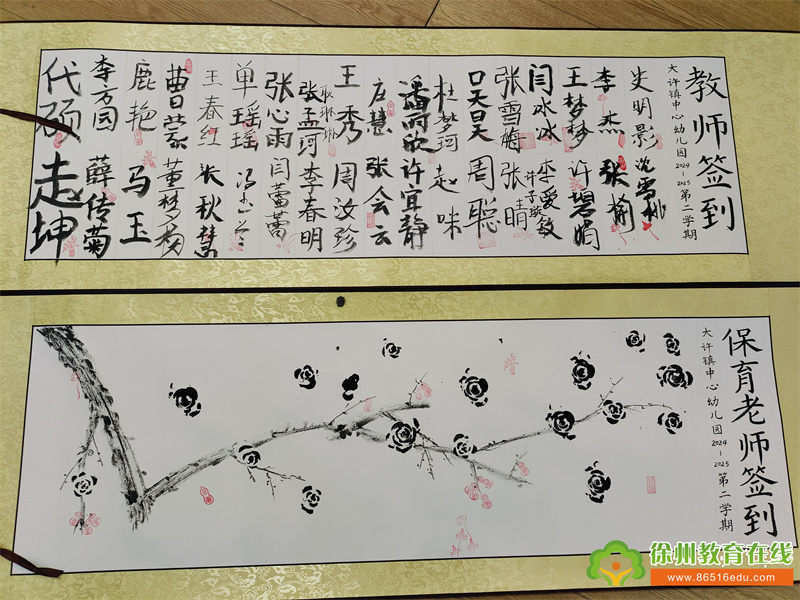 教师签到
大许镇中心幼儿园2024-2025第二学期
史明影
李杰 张榆
王梦梦 许碧娟
闫冰冰 李爱敏
张雪梅 张明
周聪
杜梦珂 赵味
潘雨欣 许宜静
左慧 张会云
王秀 周汝珍
耿琳琳
张孟珂 李春明
张心雨 闫蕾蕾
单瑶瑶
王春红 张秋慧
曹蒙 董梦茜
鹿艳 马玉
李方园 薛传菊
代硕 走坤
保育老师签到
大许镇中心幼儿园2024-2025第二学期
徐州教育在线
www.86516edu.com